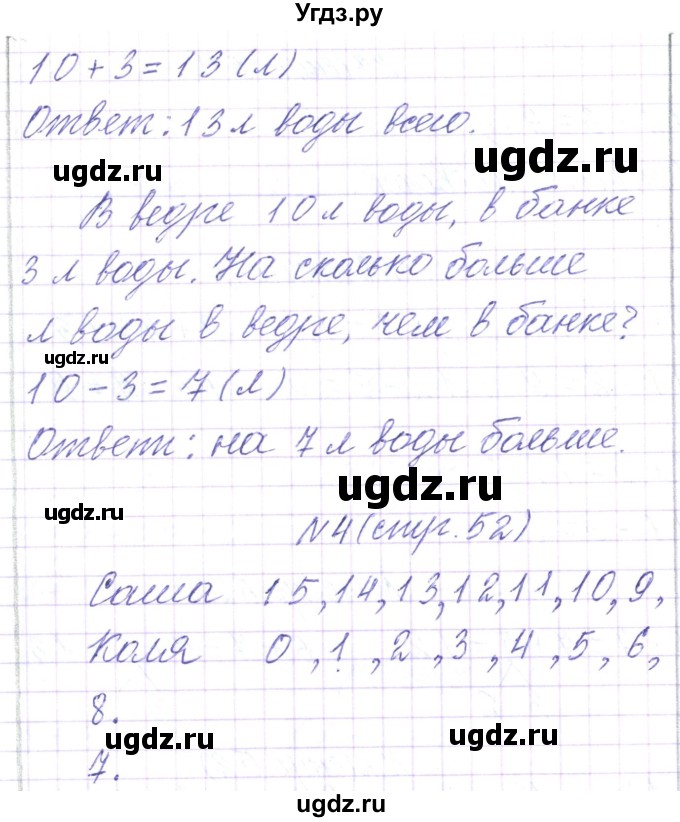 Угдз.ру
10 + 3 = 13 (л)
Ответ: 13 л воды всего.
ugdz.ru
ugdz.ru
В ведре 10 л воды, в банке
3 л воды. На сколько больше
л воды в ведре, чем в банке?
ugdz.ru
10 - 3 = 7 (л)
Ответ: на 7 л воды больше.
ugdz.ru
ugdz.ru
N4 (стр. 52)
Саша 15, 14, 13, 12, 11, 10, 9,
Коля 0, 1, 2, 3, 4, 5, 6,
8.
ugdz.ru
ugdz.ru
7.
ugdz.ru